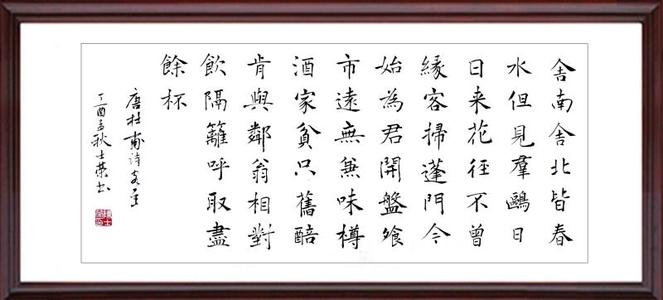 舎南舎北皆春
水但見羣鷗日
日来花径不曽
縁客掃蓬門今
始為君開盤飧
市遠無兼味樽
酒家貧只舊醅
肯與鄰翁相對
飲隔籬呼取盡
餘杯
唐杜甫诗客至
丁酉孟秋士荣书